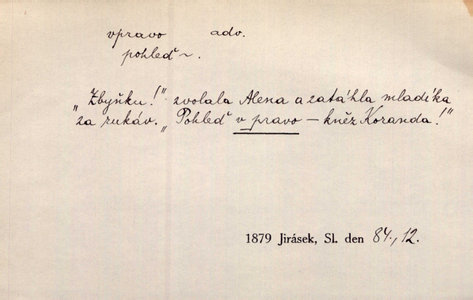 vpravo adv.
pohleď ~.
„Zbyňku!" zvolala Alena a zatáhla mladíka
za rukáv. „Pohleď v pravo — kněz Koranda!"
1879 Jirásek, Sl. den 84., 12.